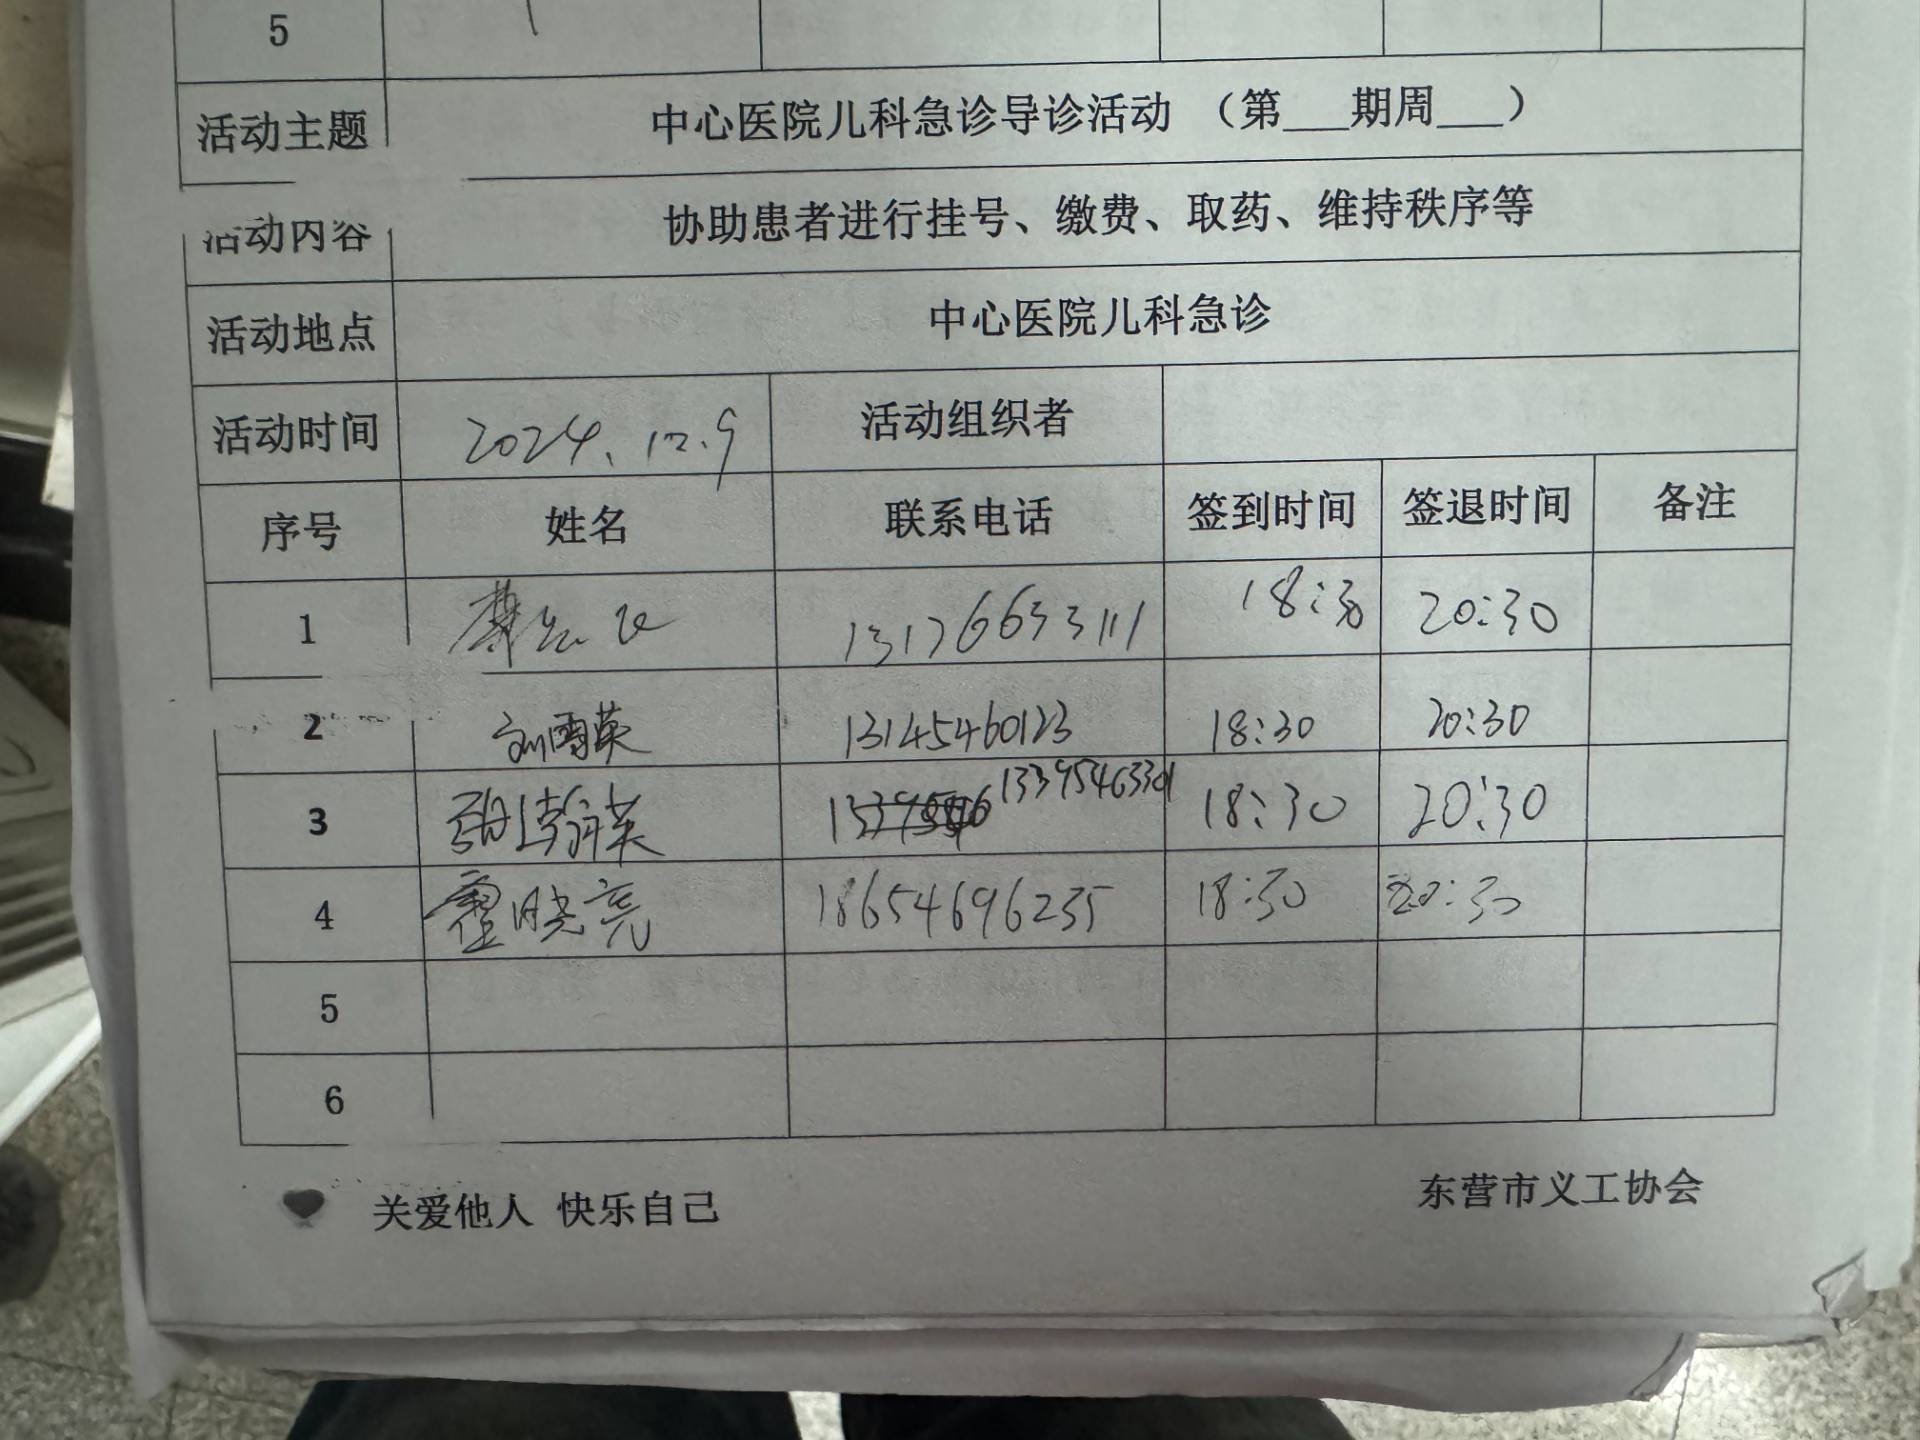 5
活动主题 中心医院儿科急诊导诊活动 （第___期周___）
活动内容 协助患者进行挂号、缴费、取药、维持秩序等
活动地点 中心医院儿科急诊
活动时间 2024.12.9 活动组织者
序号 姓名 联系电话 签到时间 签退时间 备注
1 13176633111 18:30 20:30
2 刘雪英 13145460123 18:30 20:30
3 13395463301 18:30 20:30
4 霍晓亮 18654696235 18:30 20:30
5
6
关爱他人 快乐自己 东营市义工协会